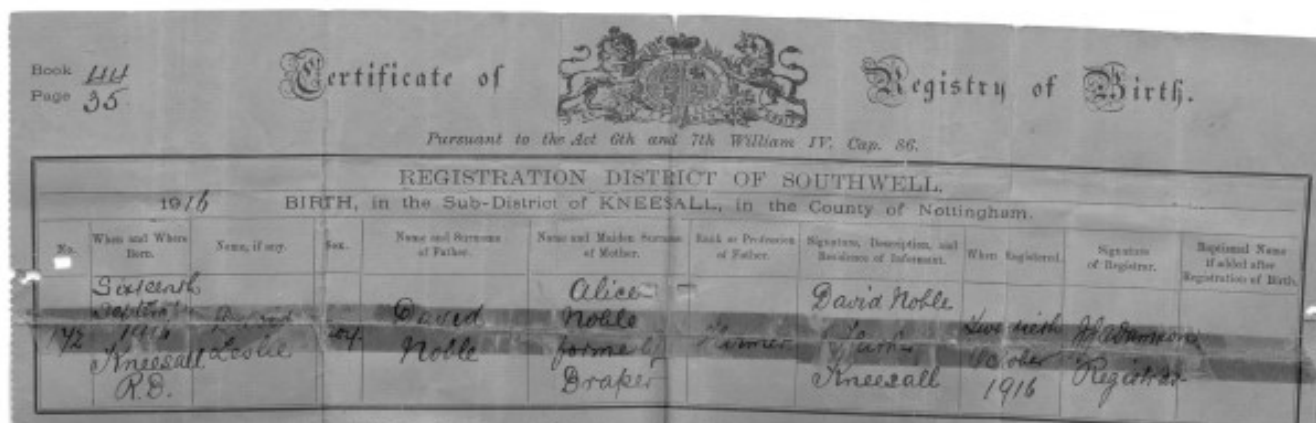 Book 44
Page 35
Certificate of Registry of Birth.
Pursuant to the Act 6th and 7th William IV. Cap. 86.
REGISTRATION DISTRICT OF SOUTHWELL.
1916 BIRTH, in the Sub-District of KNEESALL, in the County of Nottingham.
No.
When and Where Born.
Name, if any.
Sex.
Name and Surname of Father.
Name and Maiden Surname of Mother.
Rank or Profession of Father.
Signature, Description, and Residence of Informant.
When Registered.
Signature of Registrar.
Baptismal Name if added after Registration of Birth.
172
Sixteenth
1916
Kneesall
R.D.
Leslie
Boy
David
Noble
Alice
Noble
formerly
Draper
David Noble
Father
Kneesall
October
1916
Registrar